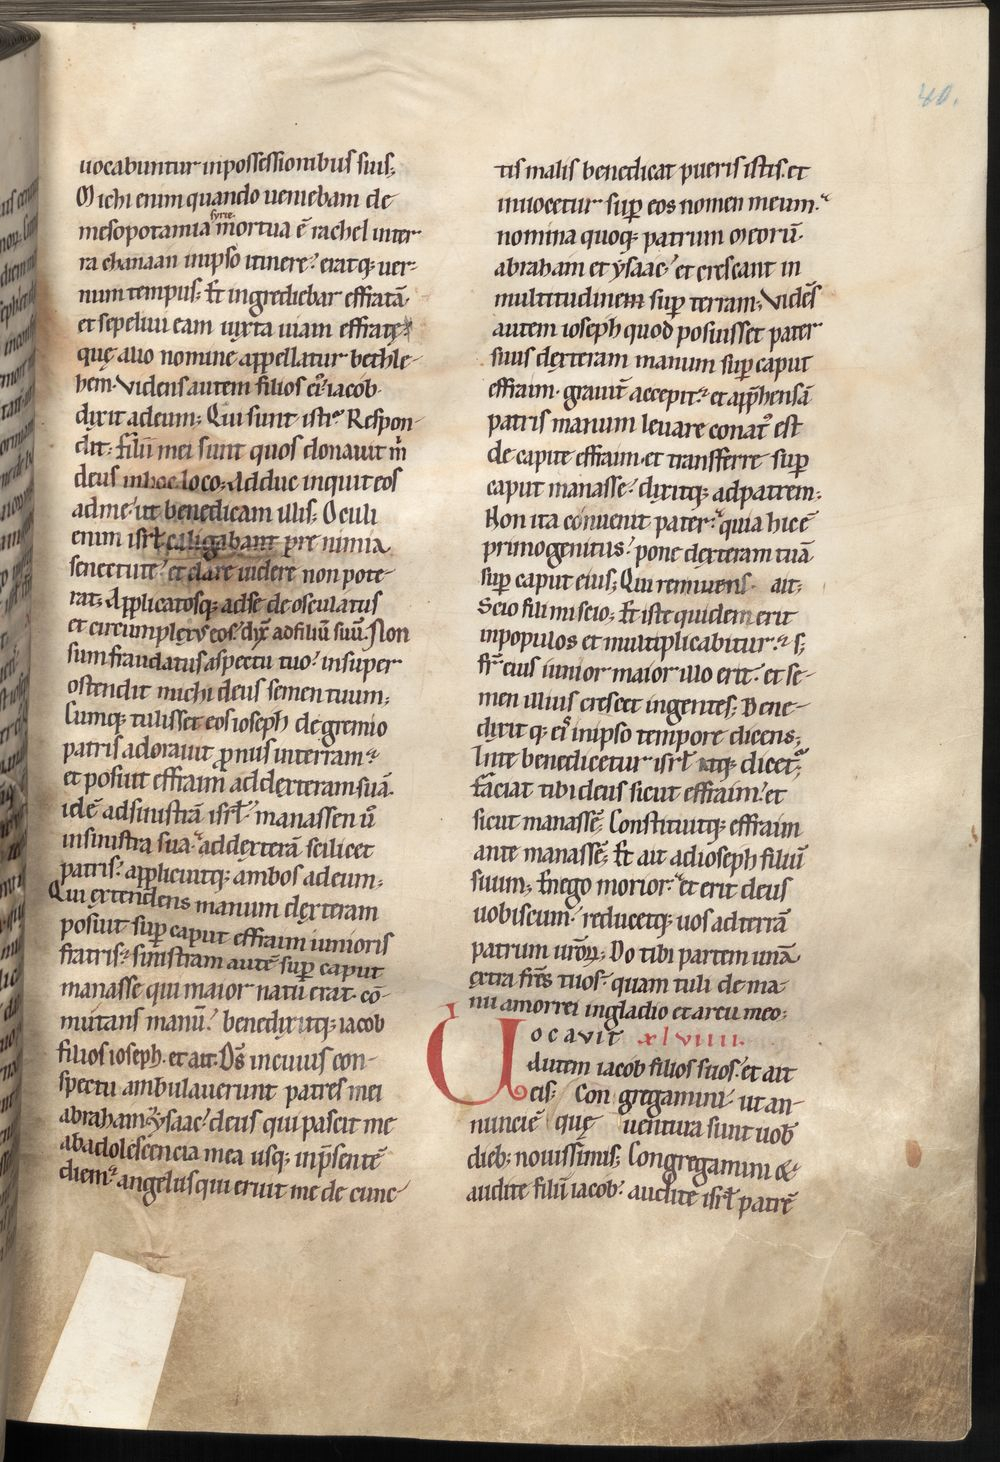 40.
uocabuntur inpossessionibus suis;
Michi enim quando ueniebam de
syrie.
mesopotamia mortua ē rachel inter
ra chanaan inipso itinere? eratq; uer-
num tempus; Et ingrediebar effratā.
et sepeliui eam iuxta uiam effratę.
quę alio nomine appellatur bethle-
hem. Vidensautem filios ei' iacob.
dixit adeum; Qui sunt isti? Respon-
dit; filii mei sunt quos donauit m̄
deus inhoc loco; Adduc inquit eos
adme ut benedicam illis; Oculi
enim isrł caligabant pre nimia
senectute? et clare uidere non pote-
rat; Applicatosq; adse deosculatus
et circumplexus eos? dix̄ adfiliū suū. Non
sum fraudatus aspectu tuo? insuper
ostendit michi deus semen tuum;
Cumq; tulisset eos ioseph de gremio
patris adorauit pronus interram?
et posuit effraim addexteram suā.
idē adsinistrā isrł? manassen ū
insinistra sua? addexterā scilicet
patris? applicuitq; ambos adeum;
Qui extendens manum dexteram
posuit sup caput effraim iunioris
fratris? sinistram autē sup caput
manasse qui maior natu erat. cō-
mutans manū? benedixitq; iacob
filios ioseph. et ait. Ds̄ incuius con-
spectu ambulauerunt patres mei
abraham? ysaac? deus qui pascit me
abadolescencia mea usq; inp̄sentē
diem? angelus qui eruit me de cunc-
tis malis benedicat pueris istis. et
inuocetur sup eos nomen meum?
nomina quoq; patrum meorū.
abraham et ysaac? et crescant in
multitudinem sup terram; Vidēs
autem ioseph quod posuisset pater
suus dexteram manum sup caput
effraim. grauit̄ accepit? et app̄hensā
patris manum leuare conat' est
de capite effraim. et transferre sup
caput manasse? dixitq; adpatrem;
Non ita conuenit pater? quia hic ē
primogenitus? pone dexteram tuā
sup caput eius; Qui renniuens ait;
Scio fili mi scio; Et iste quidem erit
inpopulos et multiplicabitur? s;
fr̄ eius iunior maior illo erit. et se-
men illius crescet ingentes; Bene-
dixit q; ei' inipso tempore dicens;
Inte benedicetur isrł atq; dicet';
faciat tibi deus sicut effraim? et
sicut manassē; Constituitq; effraim
ante manassē; Et ait adioseph filiū
suum; En ego morior? et erit deus
uobiscum? reducetq; uos adterrā
patrum ur̄oꝝ; Do tibi partem unā
extra fr̄es tuos? quam tuli de ma-
nu amorrei ingladio et arcu meo;
Uocavit xlviiii.
autem iacob filios suos? et ait
eis; Congregamini ut an-
nunciē quę uentura sunt uob'
dieb; nouissimis; Congregamini &
audite filii iacob? audite isrł patrē